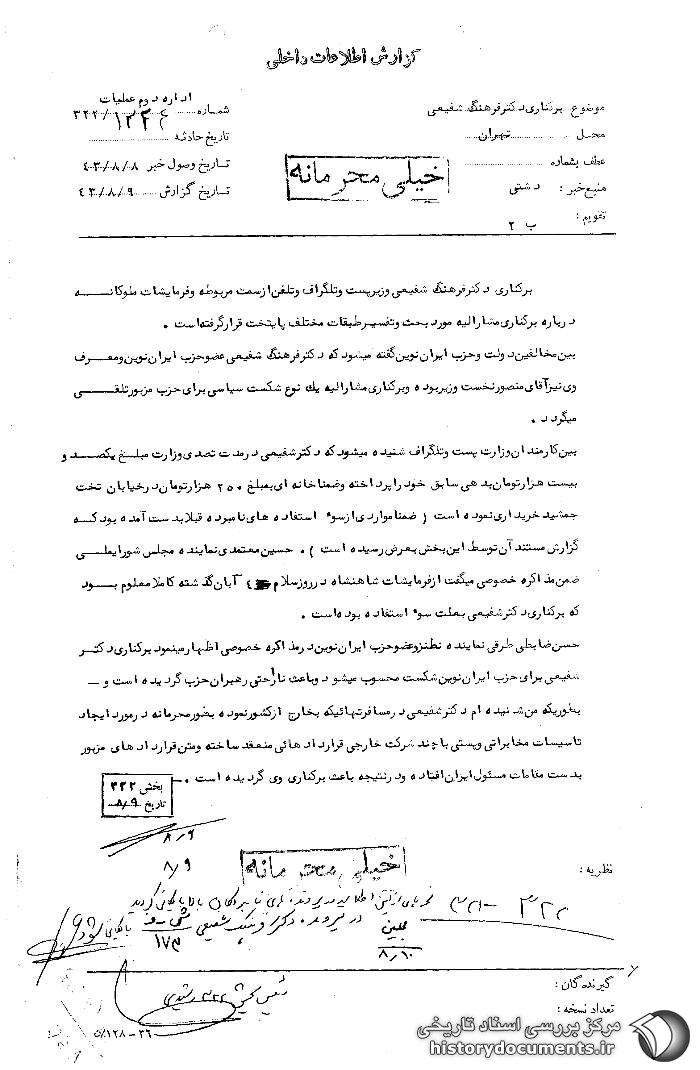 گزارش اطلاعات داخلی
موضوع: برکناری دکتر فرهنگ شفیعی
محل تهران
عطف بشماره
منبع خبر: دشتی
تقویم: ب ۲
اداره دوم عملیات
شماره ۳۲۲/۱۲۲۴
تاریخ حادثه
تاریخ وصول خبر ۴۳/۸/۸
تاریخ گزارش ۴۳/۸/۹
خیلی محرمانه
برکناری دکتر فرهنگ شفیعی وزیر پست وتلگراف وتلفن ازسمت مربوطه وفرمایشات ملوکانه
درباره برکناری مشارالیه مورد بحث وتفسیر طبقات مختلف پایتخت قرارگرفته است .
بین مخالفین دولت وحزب ایران نوین گفته میشود که دکتر فرهنگ شفیعی عضو حزب ایران نوین ومعرف
وی نیز آقای منصور نخست وزیر بوده وبرکناری مشارالیه یك نوع شکست سیاسی برای حزب مزبور تلقی
میگردد .
بین کارمندان وزارت پست وتلگراف شنیده میشود که دکتر شفیعی درمدت تصدی وزارت مبلغ یکصد و
بیست هزارتومان بدهی سابق خود را پرداخته وضمنا خانه ای بمبلغ ۲۵۰ هزارتومان درخیابان تخت
جمشید خریداری نموده است ( ضمنا مواردی ازسوء استفاده های نامبرده قبلا بدست آمده بود که
گزارش مستند آن توسط این بخش بعرض رسیده است ) . حسین معتمدی نماینده مجلس شورایملی
ضمن مذاکره خصوصی میگفت ازفرمایشات شاهنشاه در روز سلام ۴ آبان گذشته کاملا معلوم بود
که برکناری دکتر شفیعی بعلت سوء استفاده بوده است .
حسن ضابطی طرقی نماینده نطنز وعضو حزب ایران نوین درمذاکره خصوصی اظهار مینمود برکناری دکتر
شفیعی برای حزب ایران نوین شکست محسوب میشود وباعث ناراحتی رهبران حزب گردیده است و —
بطوریکه من شنیده ام دکتر شفیعی درمسافرتهائیکه بخارج ازکشور نموده بطور محرمانه درمورد ایجاد
تاسیسات مخابراتی وپستی با چند شرکت خارجی قراردادهائی منعقد ساخته ومتن قراردادهای مزبور
بدست مقامات مسئول ایران افتاده ودرنتیجه باعث برکناری وی گردیده است .
بخش ۳۲۲
تاریخ ۸/۹
۸/۹
۸/۹
خیلی محرمانه
نظریه :
در پرونده دکتر فرهنگ شفیعی
بایگانی شود
۸/۱۰
گیرندگان :
تعداد نسخه :
۵/۱۲۸-۲۶
مرکز بررسی اسناد تاریخی
historydocuments.ir